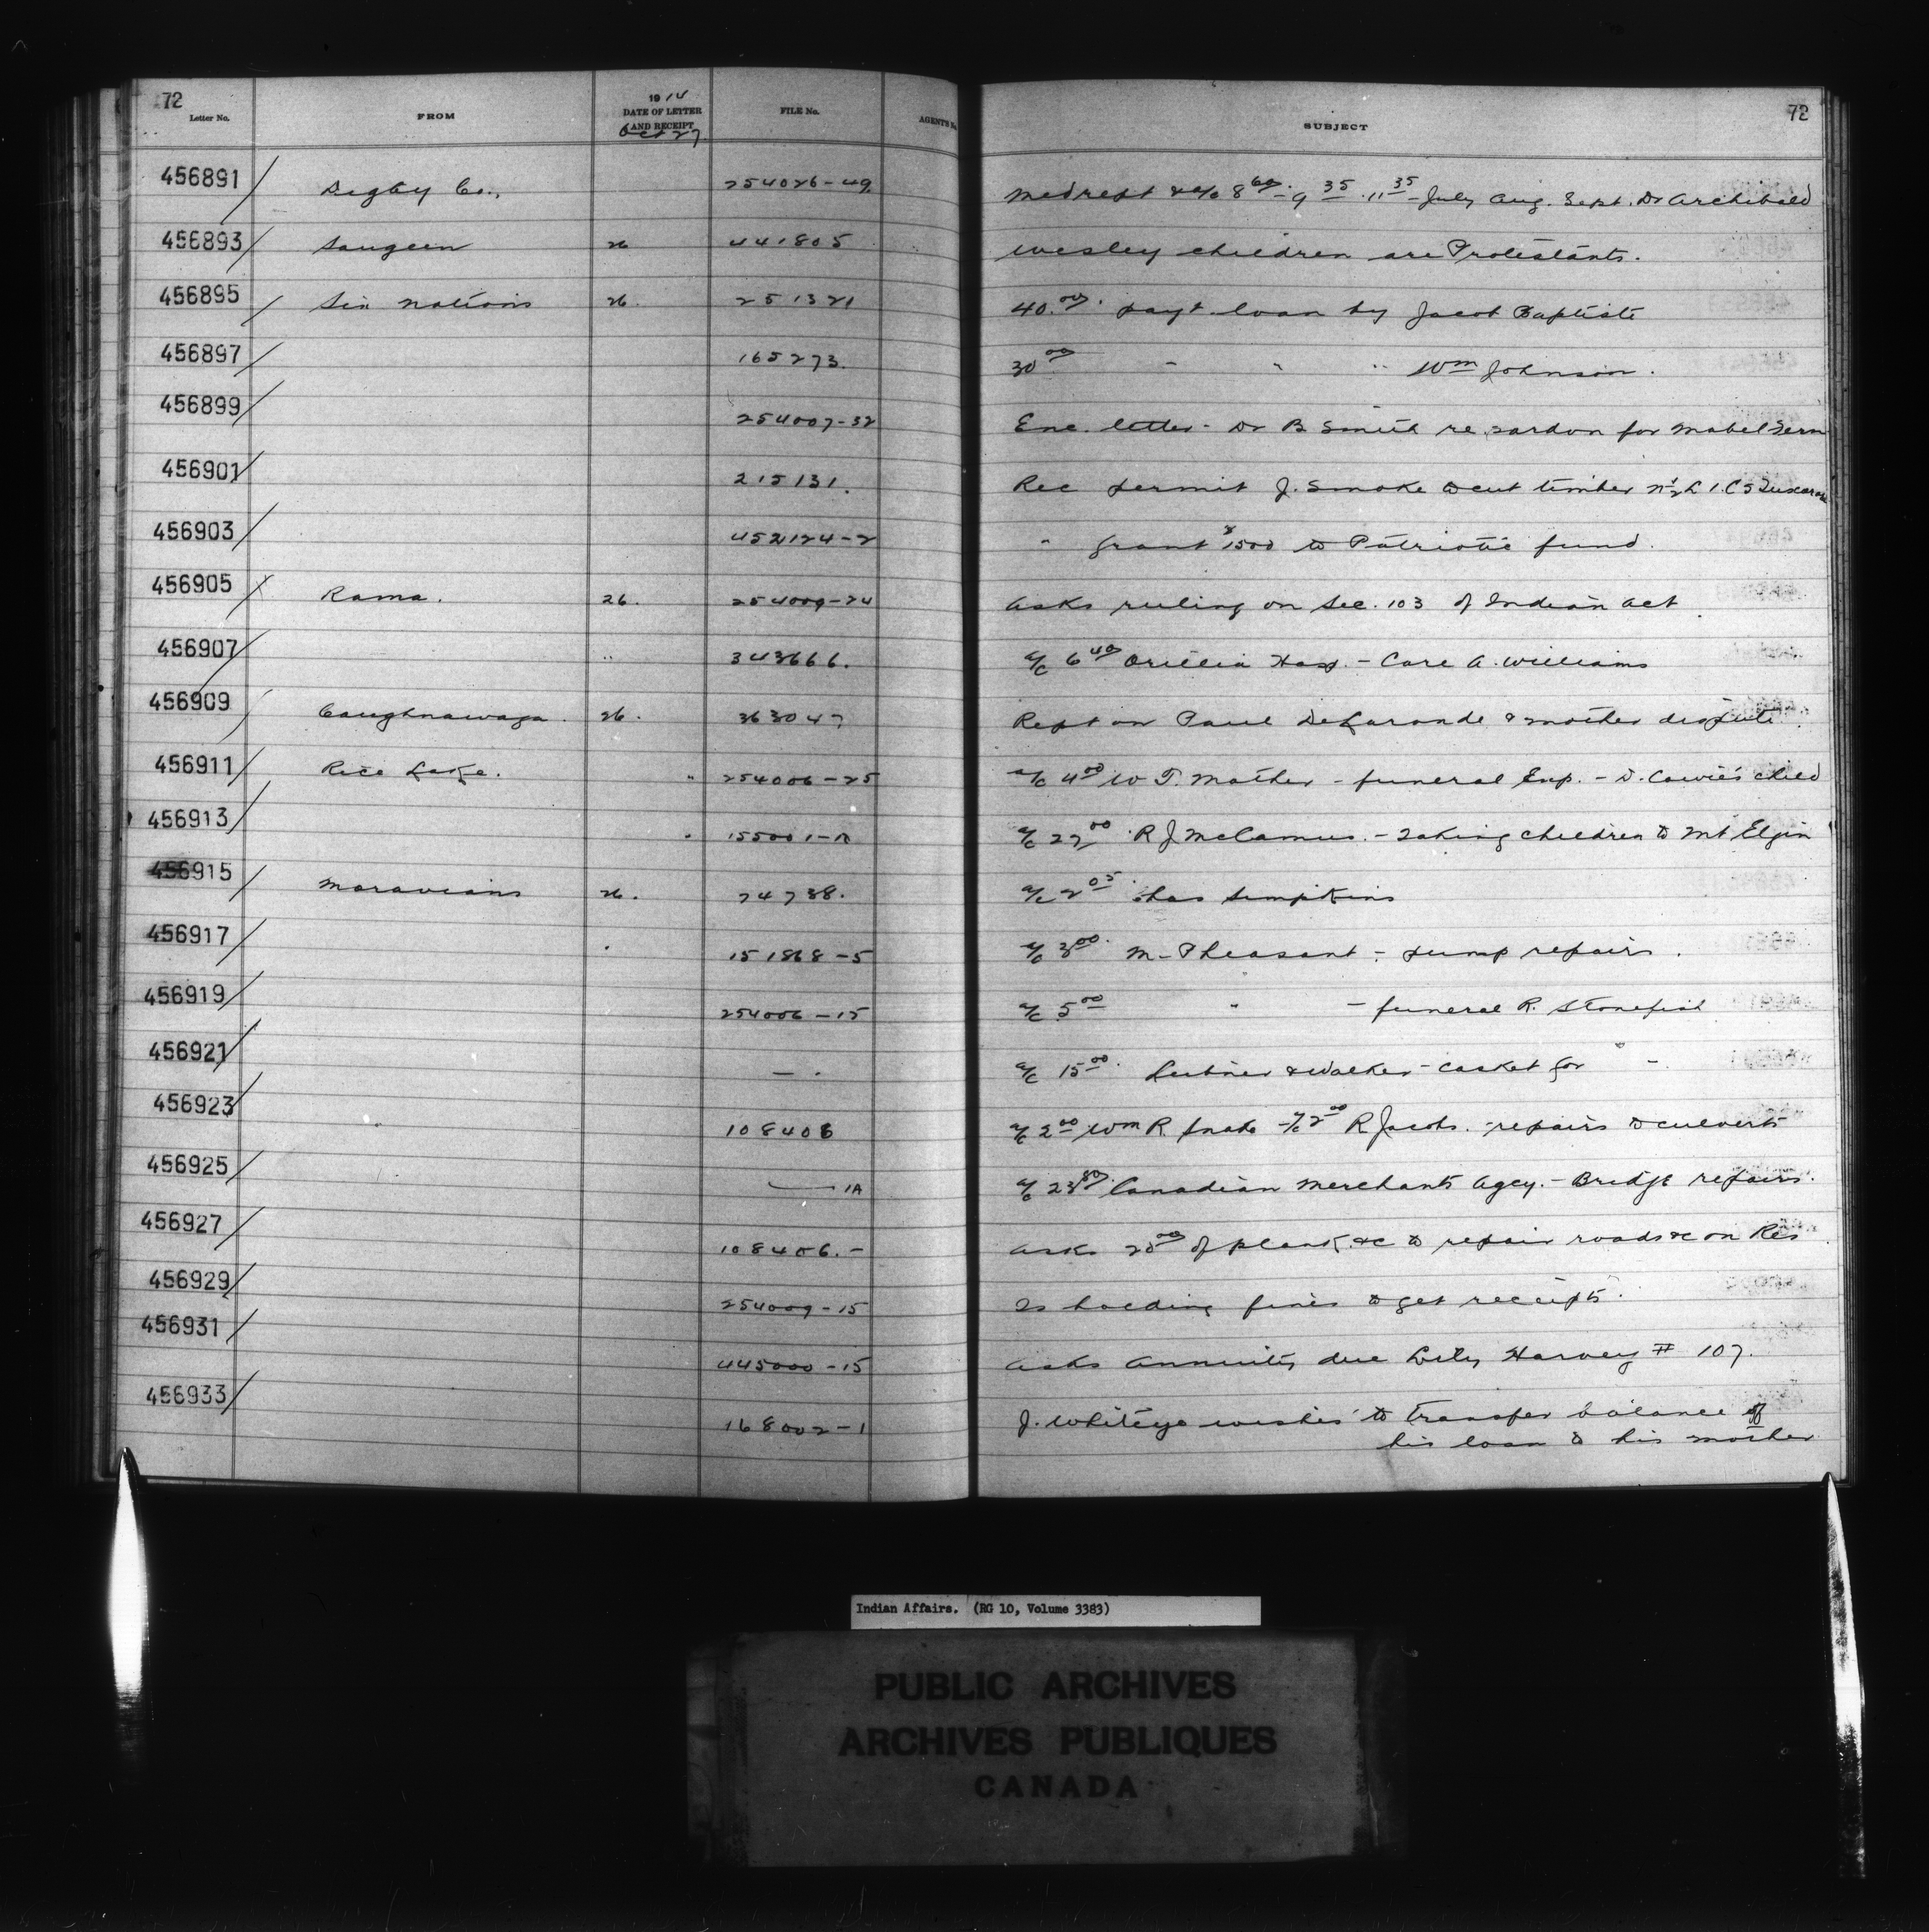 72 72
Letter No. FROM 1914 DATE OF LETTER AND RECEIPT FILE No. AGENT'S No. SUBJECT
Oct 27
456891 / Digby Co., 254026-49 Med rept & a/c 8 60 - 9 35 - 11 35 - July Aug. Sept. Dr Archibald
456893 / Saugeen 26 441805 Wesley children are Protestants.
456895 / Six Nations 26. 251321 40.00 payt loan by Jacob Baptiste
456897 / 165273. 30 00 " " " Wm Johnson.
456899 / 254007-32 Enc. letter - Dr B Smith re pardon for Mabel
456901 / 215131. Rec permit J. Smoke to cut timber N½ L 1. C 5 Tuscarora
456903 / 452124-2 " grant $1500 to Patriotic fund.
456905 / Rama. 26. 254009-24 Asks ruling on Sec. 103 of Indian Act
456907 / " 343666. a/c 6 40 Orillia Hosp. - Care A. Williams
456909 / Caughnawaga. 26. 363047 Rept on Paul DeLaronde & mother dispute.
456911 / Rice Lake. " 254006-25 a/c 4 00 W T. Mather - funeral Exp. - D. Cowie's child
456913 / " 155001- a/c 27 00 R J McCamus. - Taking children to Mt Elgin
456915 / Moravians 26. 74738. a/c 2 05 Chas Simpkins
456917 / " 151868-5 a/c 3 00 M. Pheasant - pump repairs.
456919 / 254006-15 a/c 5 00 " - funeral R. Stonefish
456921 / — . a/c 15 00 & Walker - casket for " -
456923 / 108406 a/c 2 00 Wm R. Snake - a/c 2 00 R Jacobs. - repairs to culverts
456925 / — 1A a/c 23 80 Canadian Merchants Agcy. - Bridge repairs.
456927 / 108406.- Asks 20 00 of plank &c to repair roads &c on Res.
456929 / 254009-15 Is holding fines to get receipts.
456931 / 445000-15 Asks annuity due Lily Harvey # 107.
456933 / 168002-1 J. Whiteye wishes to transfer balance of
his loan to his mother
Indian Affairs. (RG 10, Volume 3383)
PUBLIC ARCHIVES
ARCHIVES PUBLIQUES
CANADA